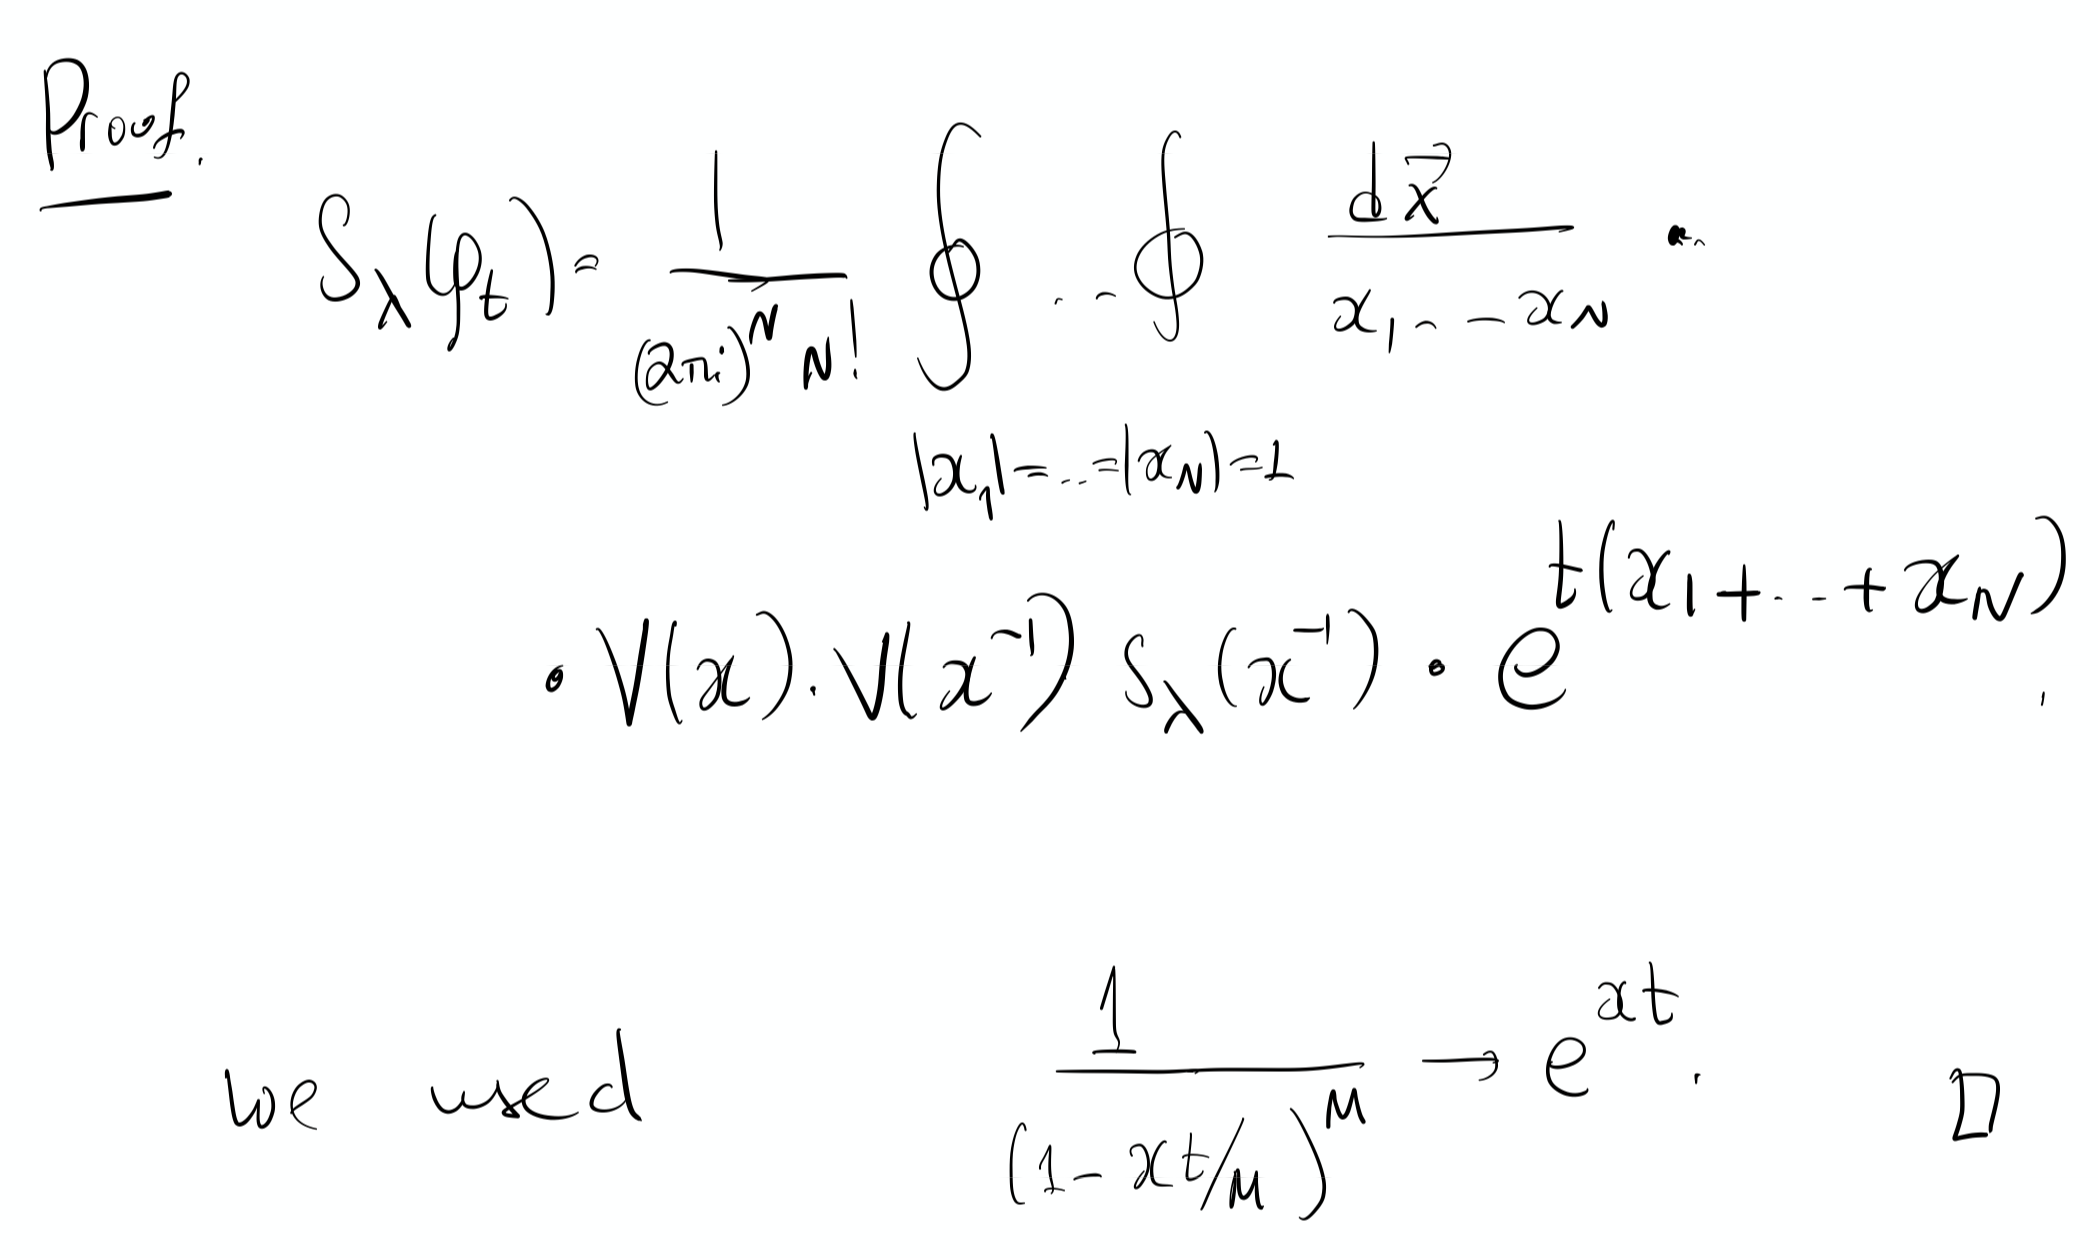 Proof.
S_λ(φ_t) = 1/((2πi)^N N!) ∮ ... ∮ dx⃗/(x_1 ... x_N) ·
|x_1| = ... = |x_N| = 1
· V(x) · V(x^{-1}) S_λ(x^{-1}) · e^{t(x_1 + ... + x_N)},
we used 1/(1 - xt/M)^M → e^{xt}. □